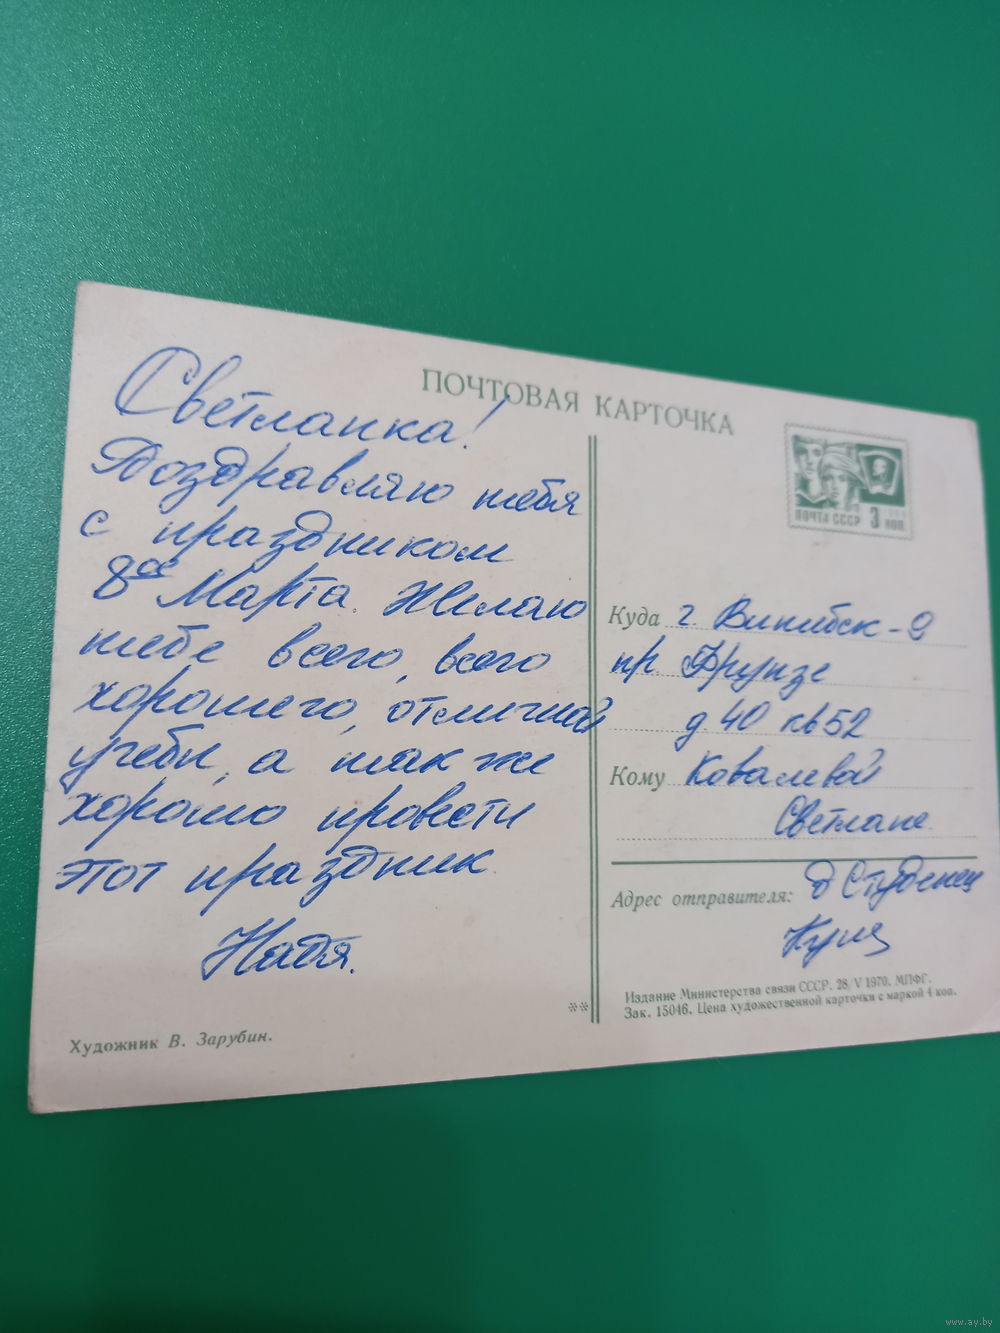 ПОЧТОВАЯ КАРТОЧКА
Светланка!
Поздравляю тебя
с праздником
8ое Марта. Желаю
тебе всего, всего
хорошего, отличной
учебы, а так же
хорошо провести
этот праздник.
Надя.
Художник В. Зарубин.
**
ПОЧТА СССР 3 КОП
Куда г. Витебск-9
пр. Фрунзе
д. 40 кв 52
Кому Ковалевой
Светлане.
Адрес отправителя: д Студенец
Издание Министерства связи СССР. 28/V 1970. МПФГ.
Зак. 15046. Цена художественной карточки с маркой 4 коп.
www.ay.by